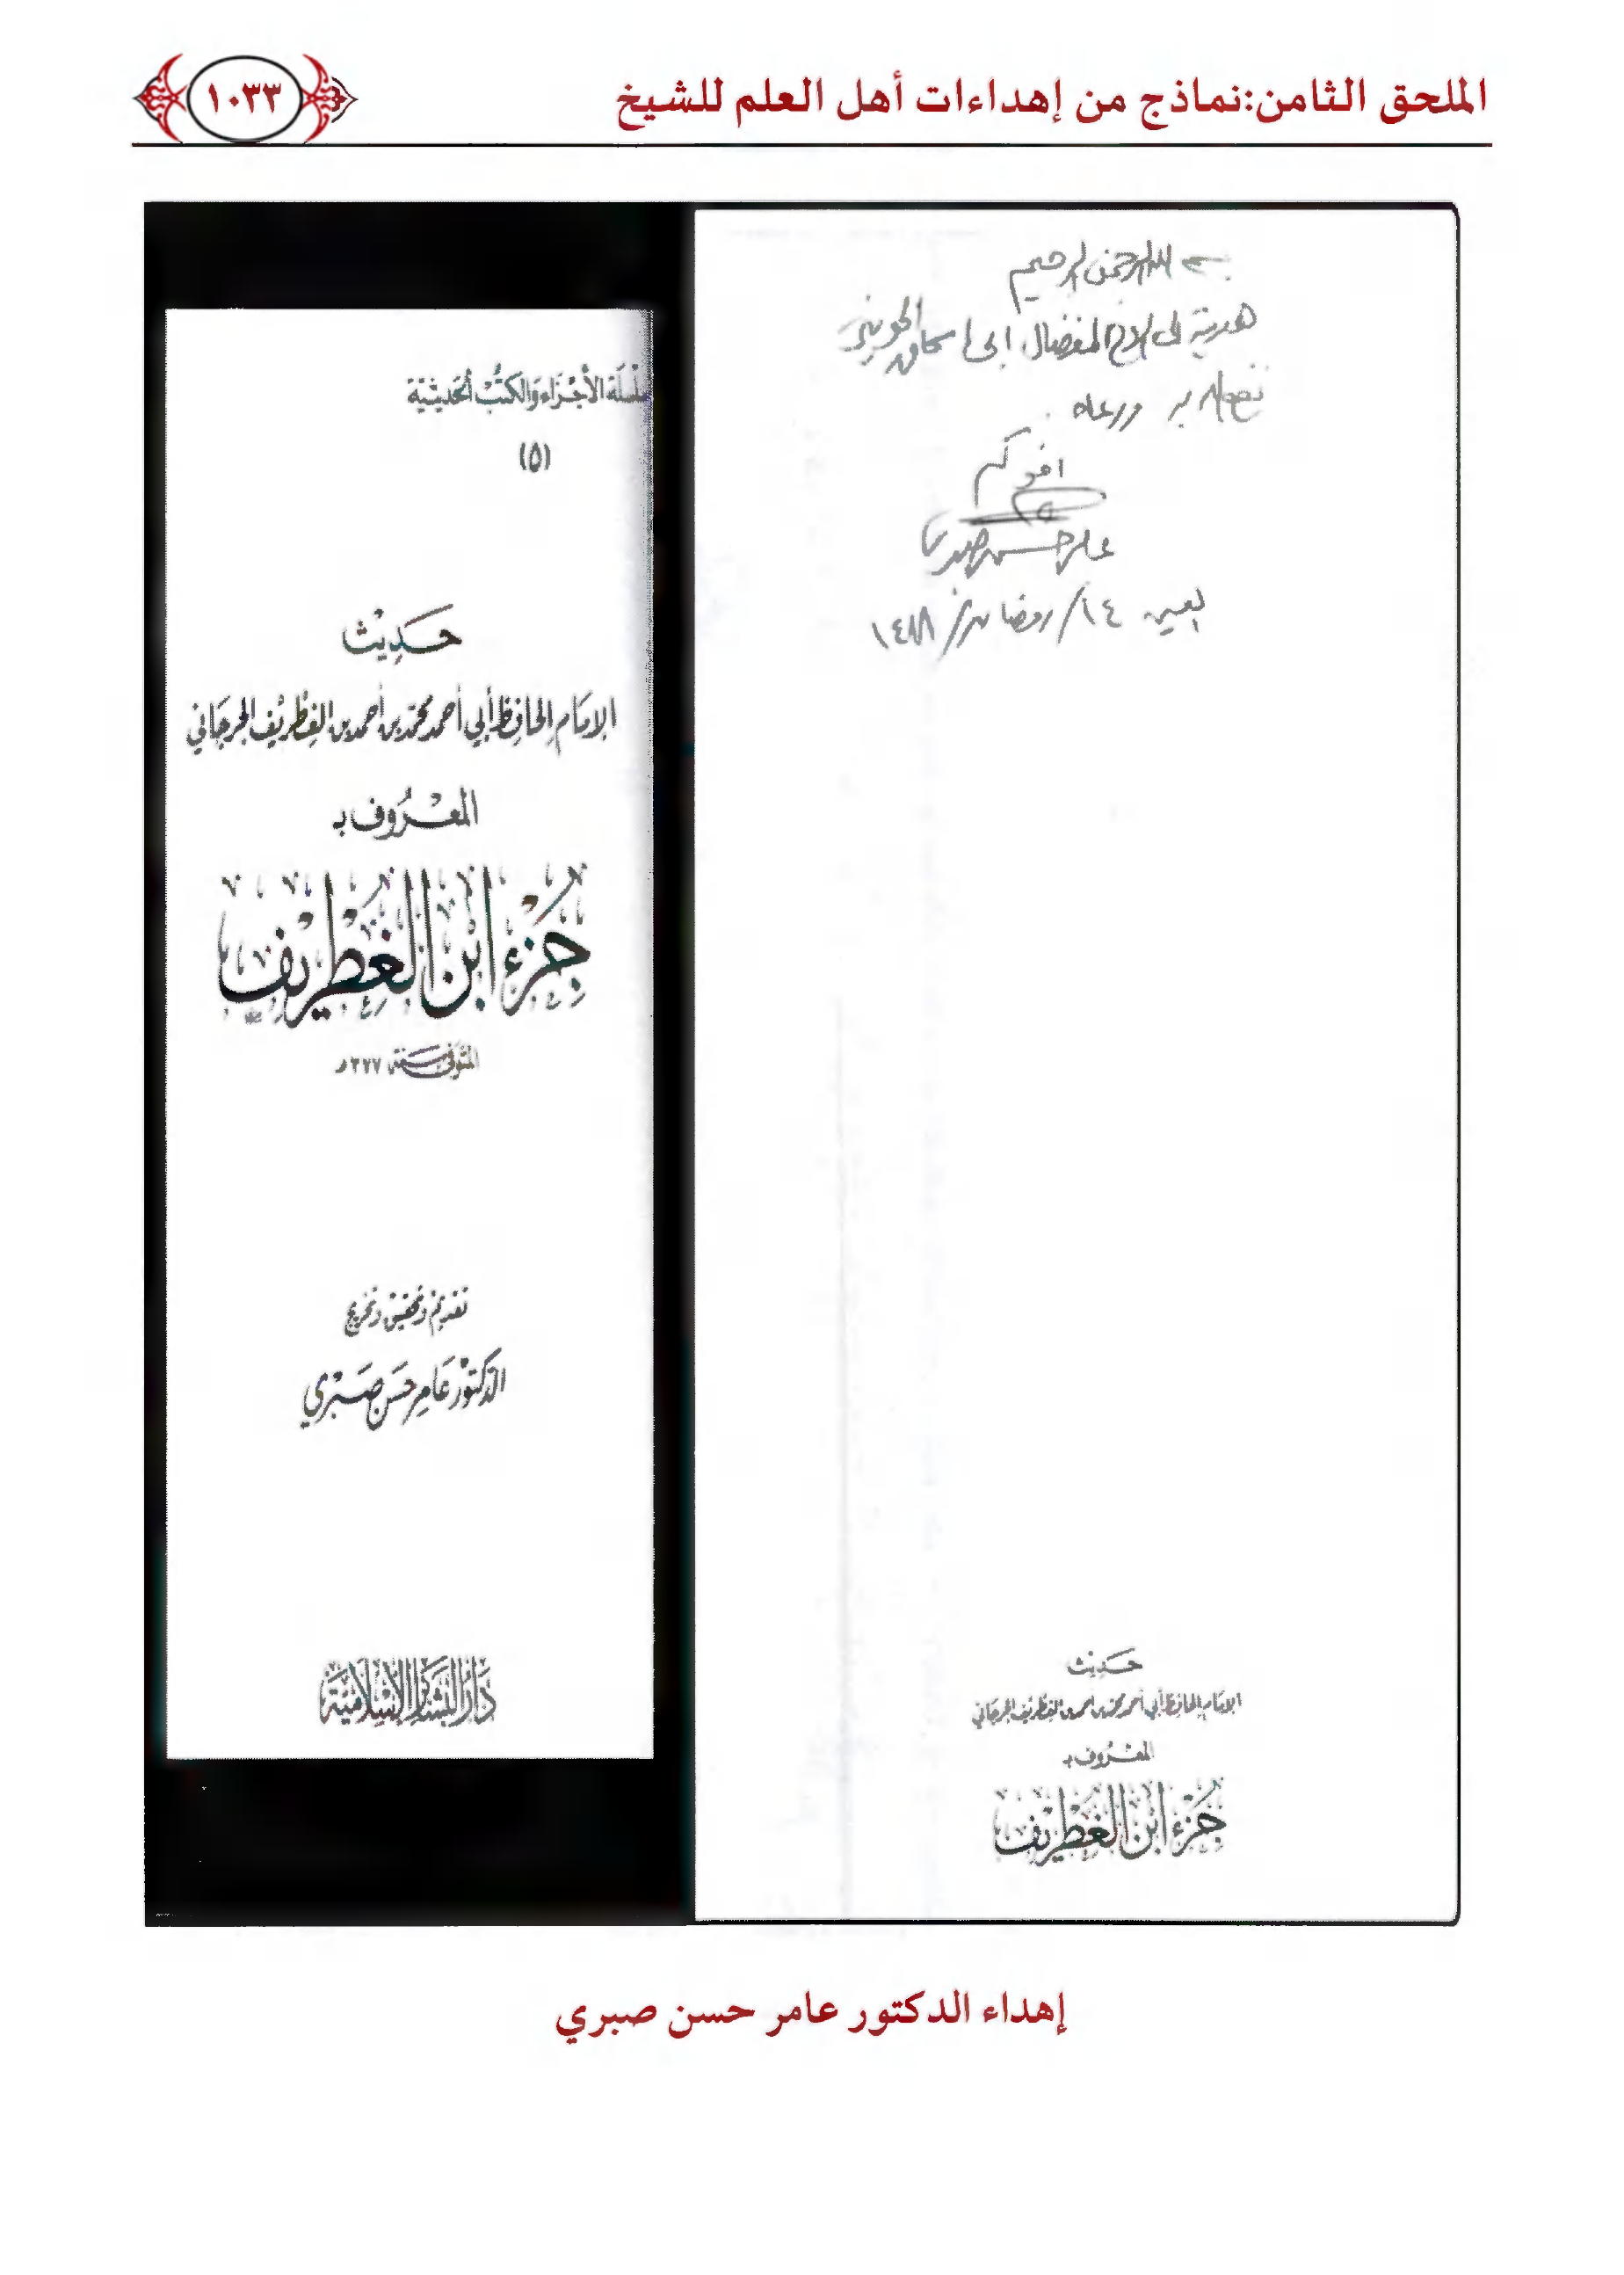 الملحق الثامن:نماذج من إهداءات أهل العلم للشيخ
١٠٣٣
بسم الله الرحمن الرحيم
هدية إلى الأخ المفضال أبي إسحاق الحويني
ورعاه
أخوكم
عامر حسن صبري
العين ١٤/رمضان/١٤١٨
حديث
الإمام الحافظ أبي أحمد محمد بن أحمد بن الغطريف الجرجاني
المعروف بـ
جزء ابن الغطريف
سلسلة الأجزاء والكتب الحديثية
(٥)
حديث
الإمام الحافظ أبي أحمد محمد بن أحمد بن الغطريف الجرجاني
المعروف بـ
جزء ابن الغطريف
المتوفى سنة ٣٧٧هـ
تقديم وتحقيق وتخريج
الدكتور عامر حسن صبري
دار البشائر الإسلامية
إهداء الدكتور عامر حسن صبري